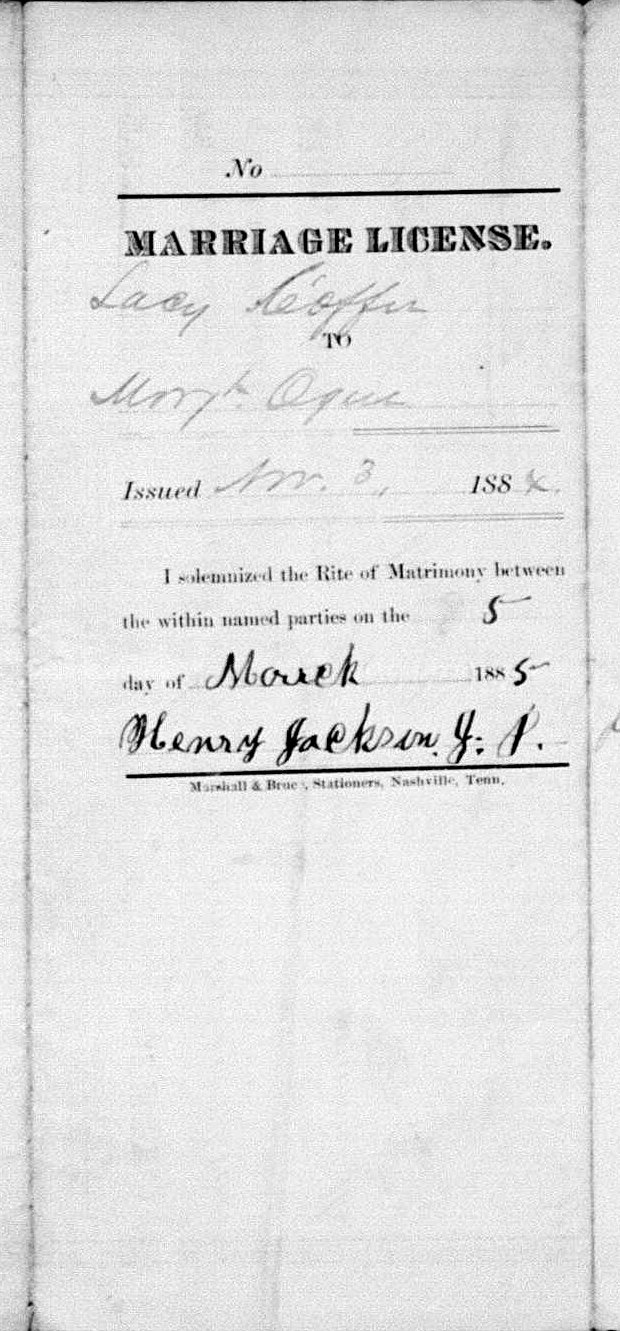 No
MARRIAGE LICENSE.
Lacy Coffer
TO
Morgh. Ogue
Issued Nov. 3, 1884.
I solemnized the Rite of Matrimony between
the within named parties on the 5
day of March 1885
Henry Jackson J. P.
Marshall & Bruce, Stationers, Nashville, Tenn.